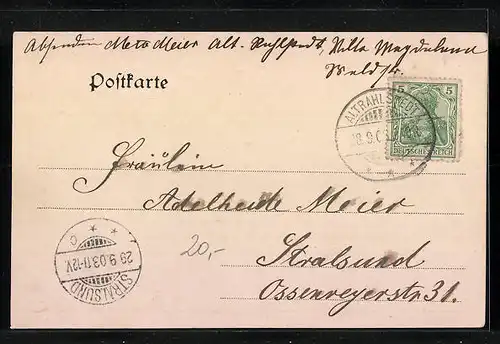 Absender Meta Meier Alt-Rahlstedt, Villa Magdalena
Waldstr.
Postkarte
ALTRAHLSTEDT
28.9.0
5 5
DEUTSCHES REICH
Fräulein
Adelheide Meier
20,-
Stralsund
Ossenreyerstr 31.
STRALSUND
29.9.03.11-12V.
* * c